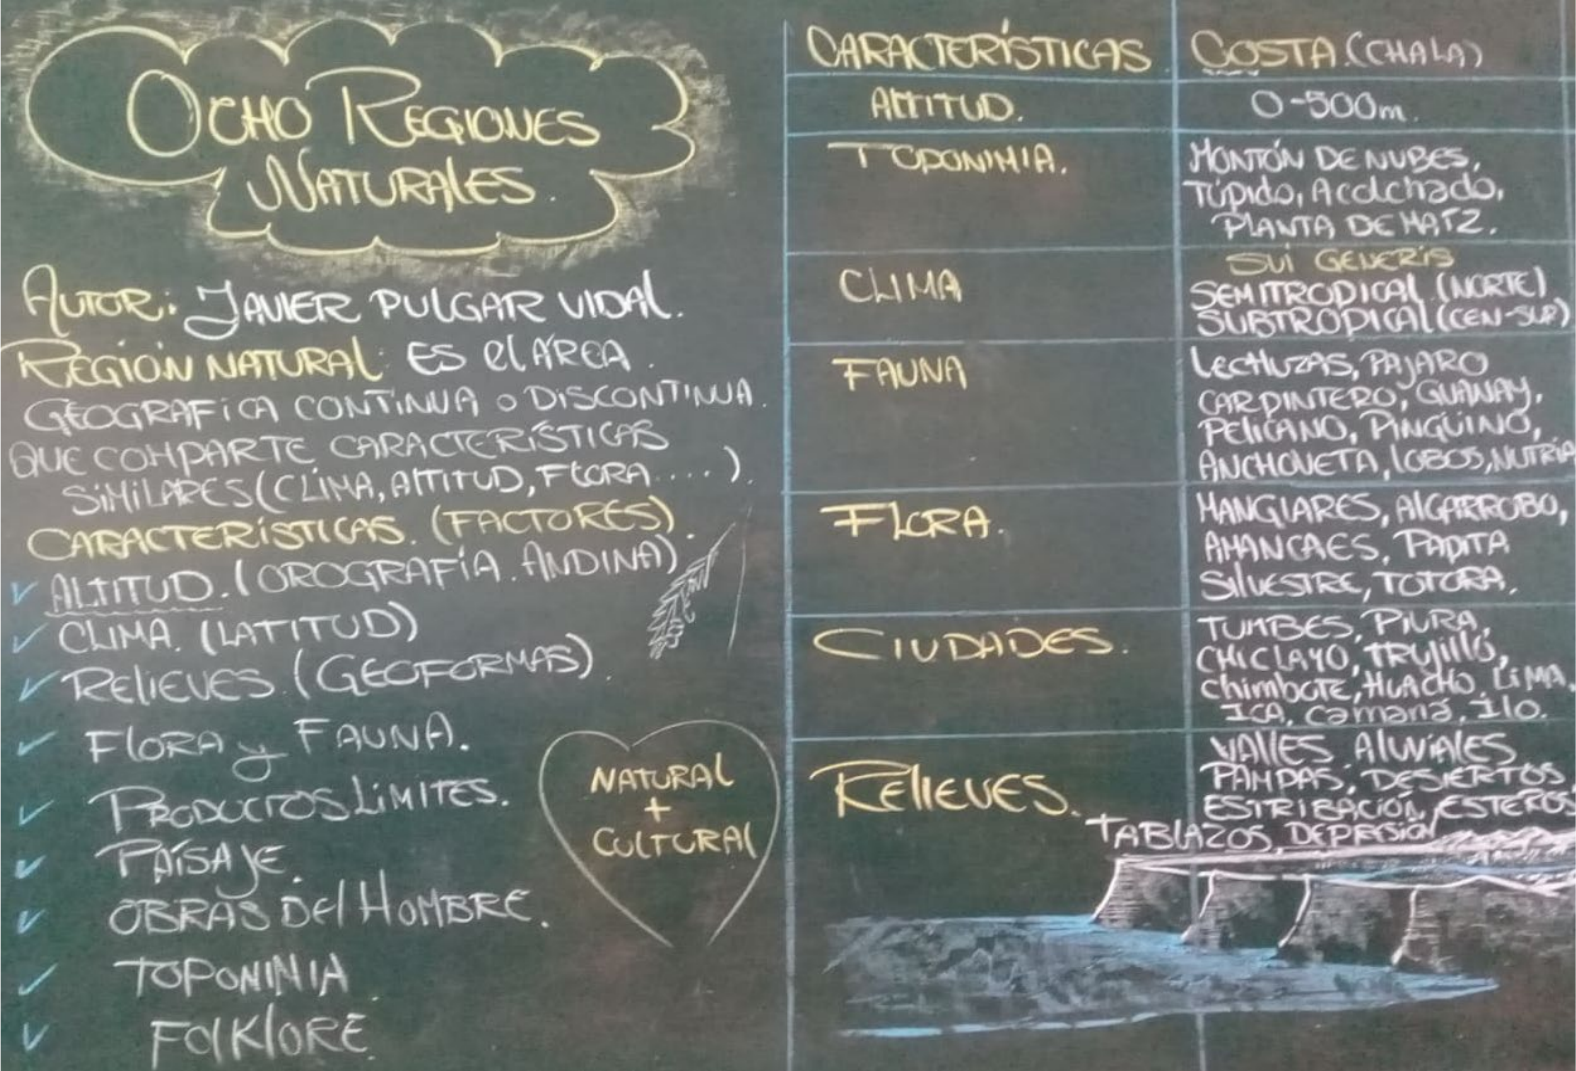 OCHO REGIONES
NATURALES.
AUTOR: JAVIER PULGAR VIDAL.
REGIÓN NATURAL: ES El ÁREA.
GEOGRAFICA CONTINUA o DISCONTINUA.
QUE COMPARTE CARACTERÍSTICAS
SIMILARES (CLIMA, AltITUD, FLORA....).
CARACTERÍSTICAS. (FACTORES).
✓ ALTITUD. (OROGRAFÍA. ANDINA)
✓ CLIMA. (LATITUD)
✓ RELIEVES. (GEOFORMAS).
✓ FLORA y FAUNA.
✓ PRODUCTOS LÍMITES.
✓ PAÍSAJE.
✓ OBRAS DEl HOMBRE.
✓ TOPONIMIA
✓ FOlKlORE
NATURAL
+
CULTURAL
CARACTERÍSTICAS COSTA.(CHALA)
AltITUD. 0-500m.
TOPONIMIA. MONTÓN DE NUBES,
Túpido, Acolchado,
PLANTA DE MAÍZ.
CLIMA SUI GENERIS
SEMITROPICAL.(NORTE)
SUBTROPICAL (CEN-SUR)
FAUNA LECHUZAS, PAJARO
CARPINTERO, GUANAY,
PELICANO, PINGÜINO,
ANCHOVETA, LOBOS, NUTRIA
FLORA. MANGLARES, AlGARROBO,
AMANCAES, PAPITA
SilVESTRE, TOTORA.
CIUDADES. TUMBES, PIURA,
CHICLAYO, TRUJIllO,
Chimbote, HUACHO, LIMA,
ICA, Camaná, Ilo.
RElIEVES. VAllES AlUVIALES
PAMPAS, DESIERTOS
ESTRIBACIÓN, ESTEROS
TABlAZOS, DEPRESIÓN